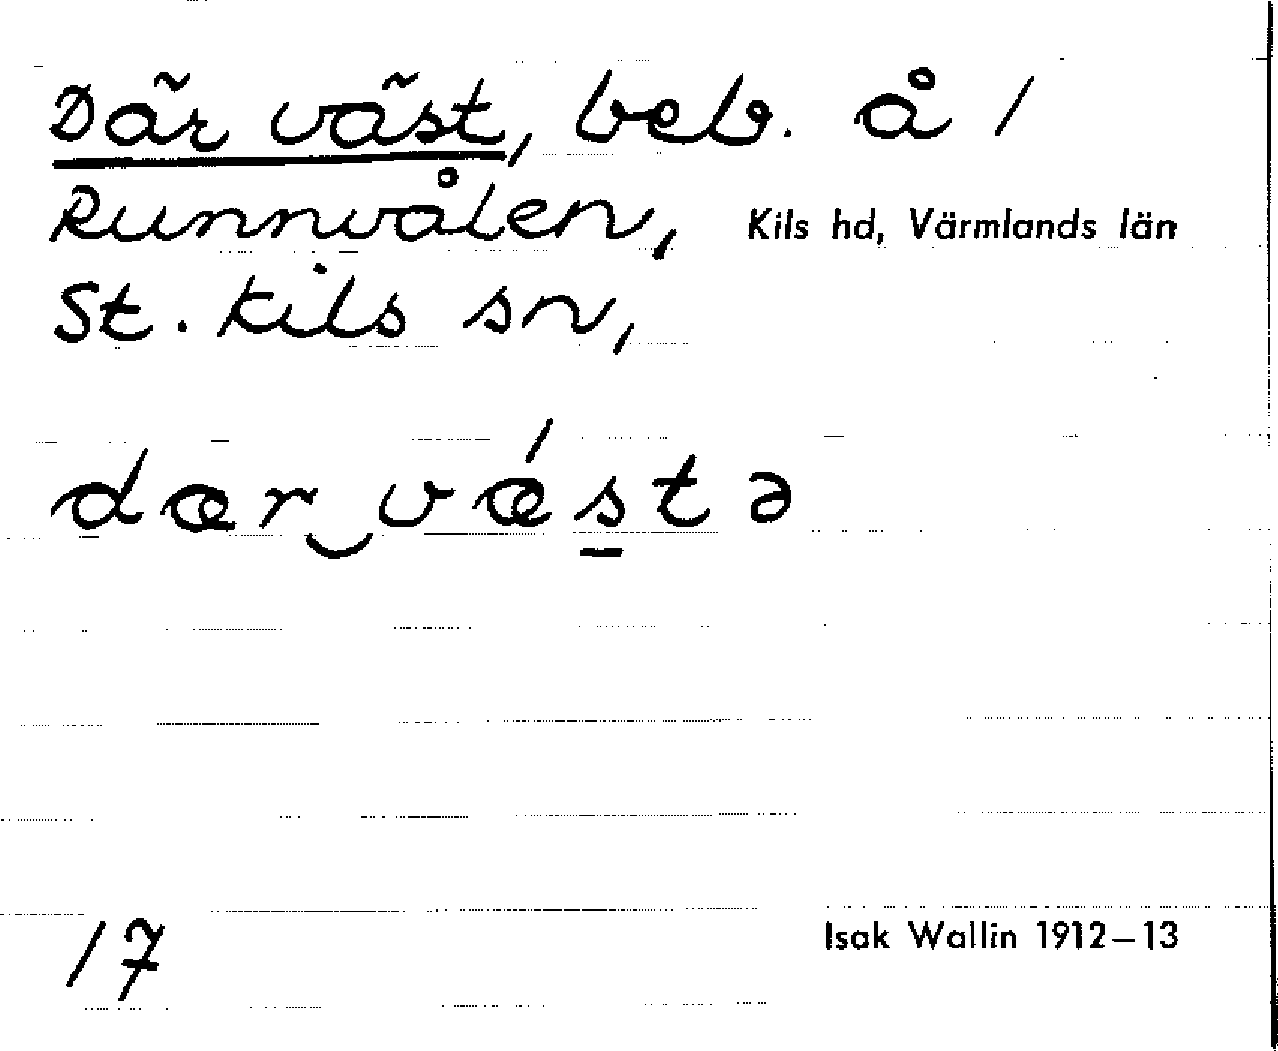 Där väst, beb. å /
Runnvålen, Kils hd, Värmlands län
St. Kils sn,
dær‿vǽstə
17
Isak Wallin 1912–13